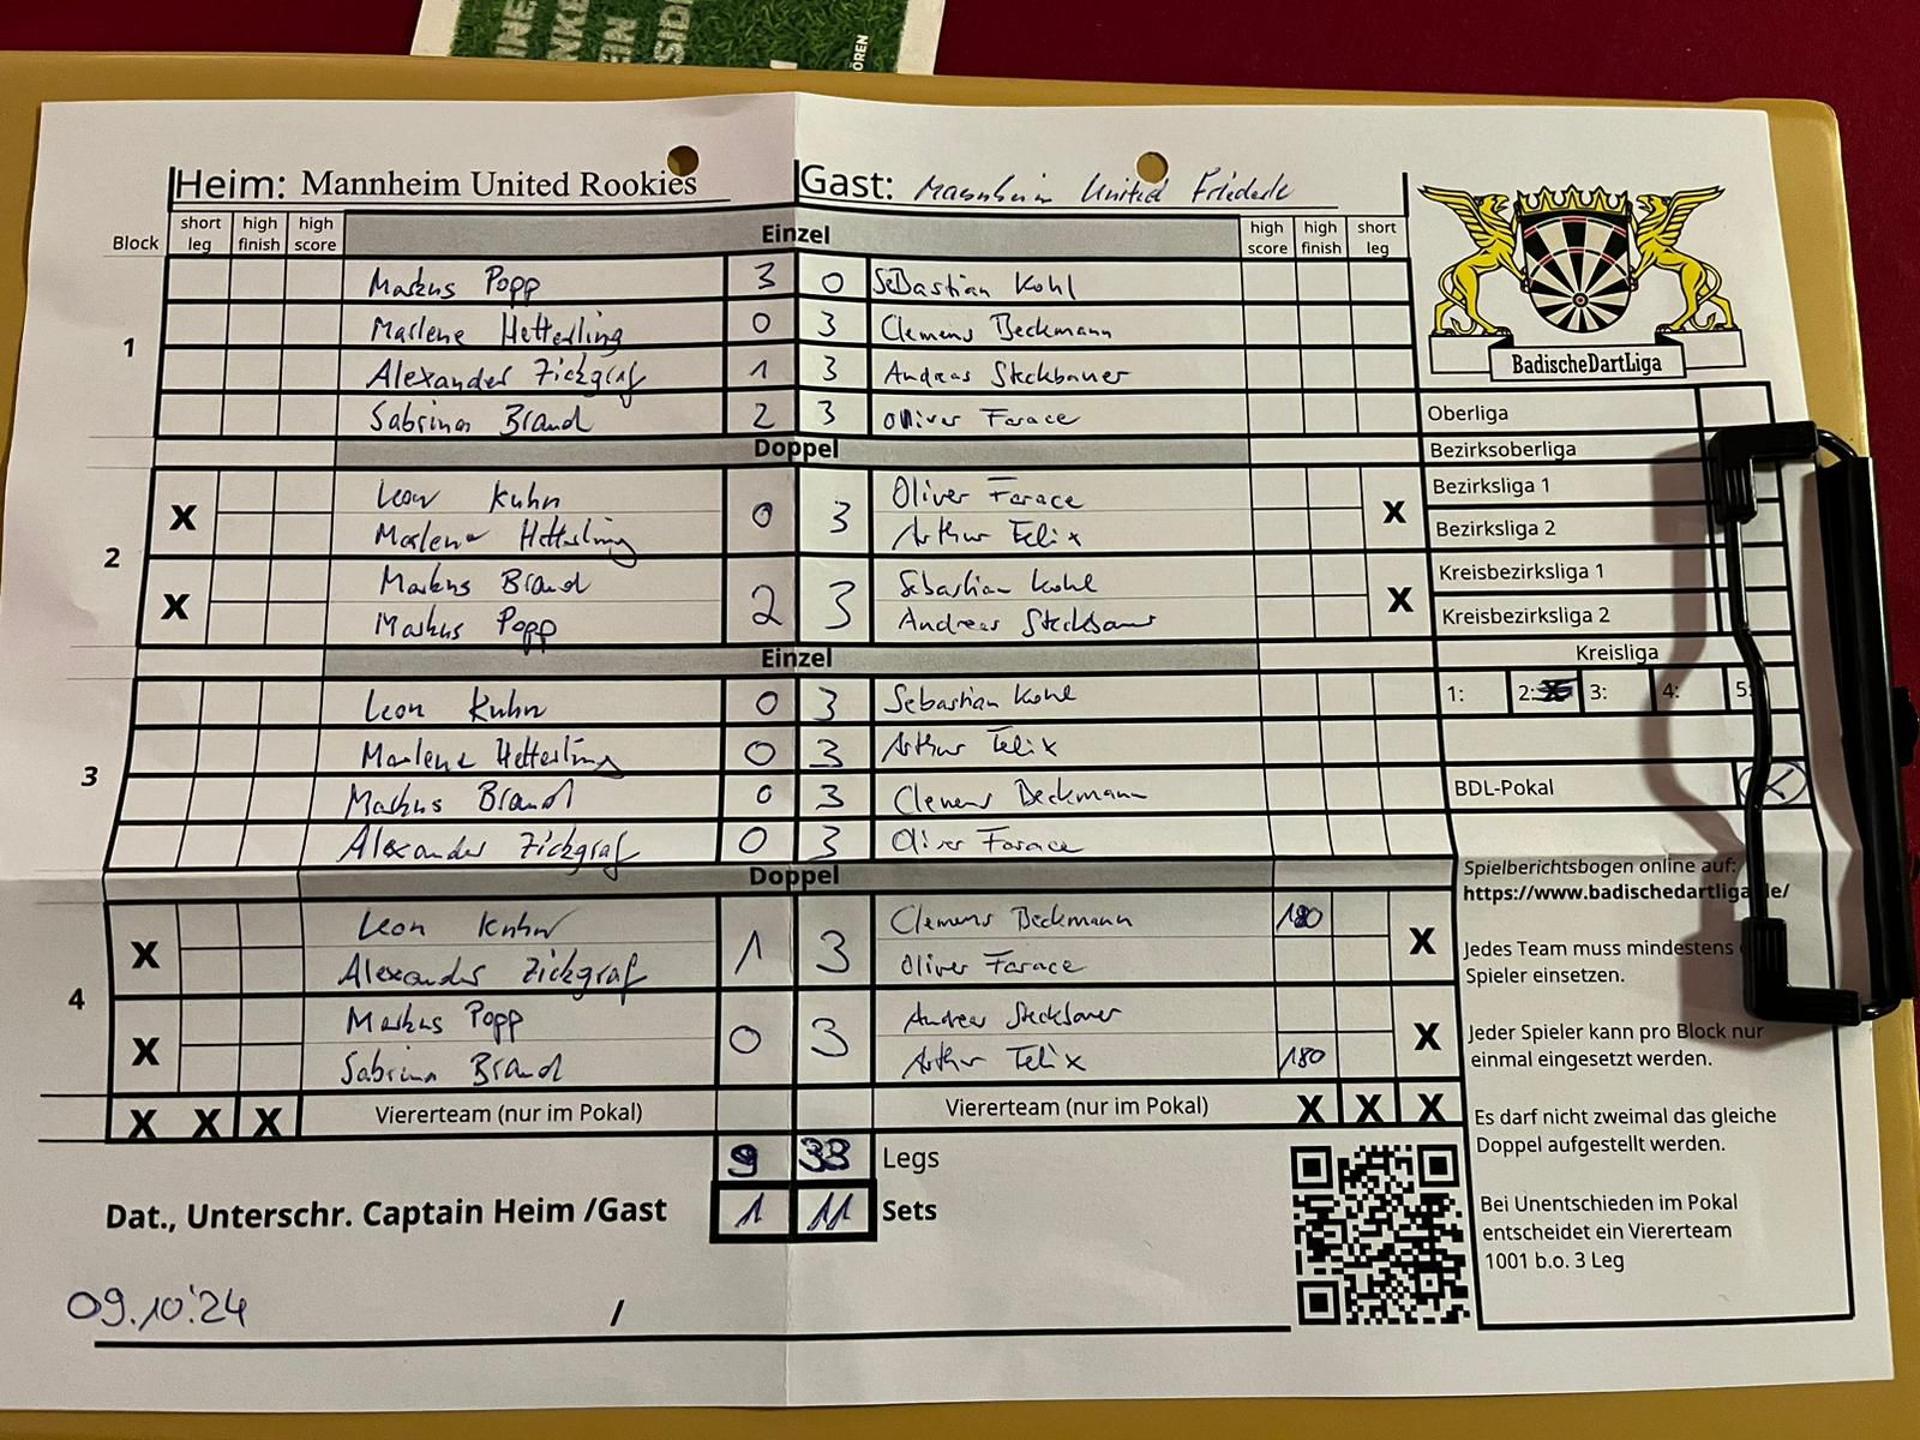 Heim: Mannheim United Rookies Gast: Mannheim United Friederle
Block short leg high finish high score Einzel high score high finish short leg
1
Markus Popp 3 0 Sebastian Kohl
Marlene Hetterling 0 3 Clemens Beckmann
Alexander Zickgraf 1 3 Andreas Steckbauer
Sabrina Brand 2 3 Oliver Farace
Doppel
2
X Leon Kuhn 0 3 Oliver Farace X
Marlene Hetterling Arthur Felix
X Markus Brand 2 3 Sebastian Kohl X
Markus Popp Andreas Steckbauer
Einzel
3
Leon Kuhn 0 3 Sebastian Kohl
Marlene Hetterling 0 3 Arthur Felix
Markus Brand 0 3 Clemens Beckmann
Alexander Zickgraf 0 3 Oliver Farace
Doppel
4
X Leon Kuhn 1 3 Clemens Beckmann 180 X
Alexander Zickgraf Oliver Farace
X Markus Popp 0 3 Andreas Steckbauer X
Sabrina Brand Arthur Felix 180
X X X Viererteam (nur im Pokal) Viererteam (nur im Pokal) X X X
9 33 Legs
Dat., Unterschr. Captain Heim /Gast 1 11 Sets
09.10.'24 /
BadischeDartLiga
Oberliga
Bezirksoberliga
Bezirksliga 1
Bezirksliga 2
Kreisbezirksliga 1
Kreisbezirksliga 2
Kreisliga
1: 2: 3: 4: 5:
BDL-Pokal X
Spielberichtsbogen online auf:
https://www.badischedartliga.de/
Jedes Team muss mindestens
Spieler einsetzen.
Jeder Spieler kann pro Block nur
einmal eingesetzt werden.
Es darf nicht zweimal das gleiche
Doppel aufgestellt werden.
Bei Unentschieden im Pokal
entscheidet ein Viererteam
1001 b.o. 3 Leg